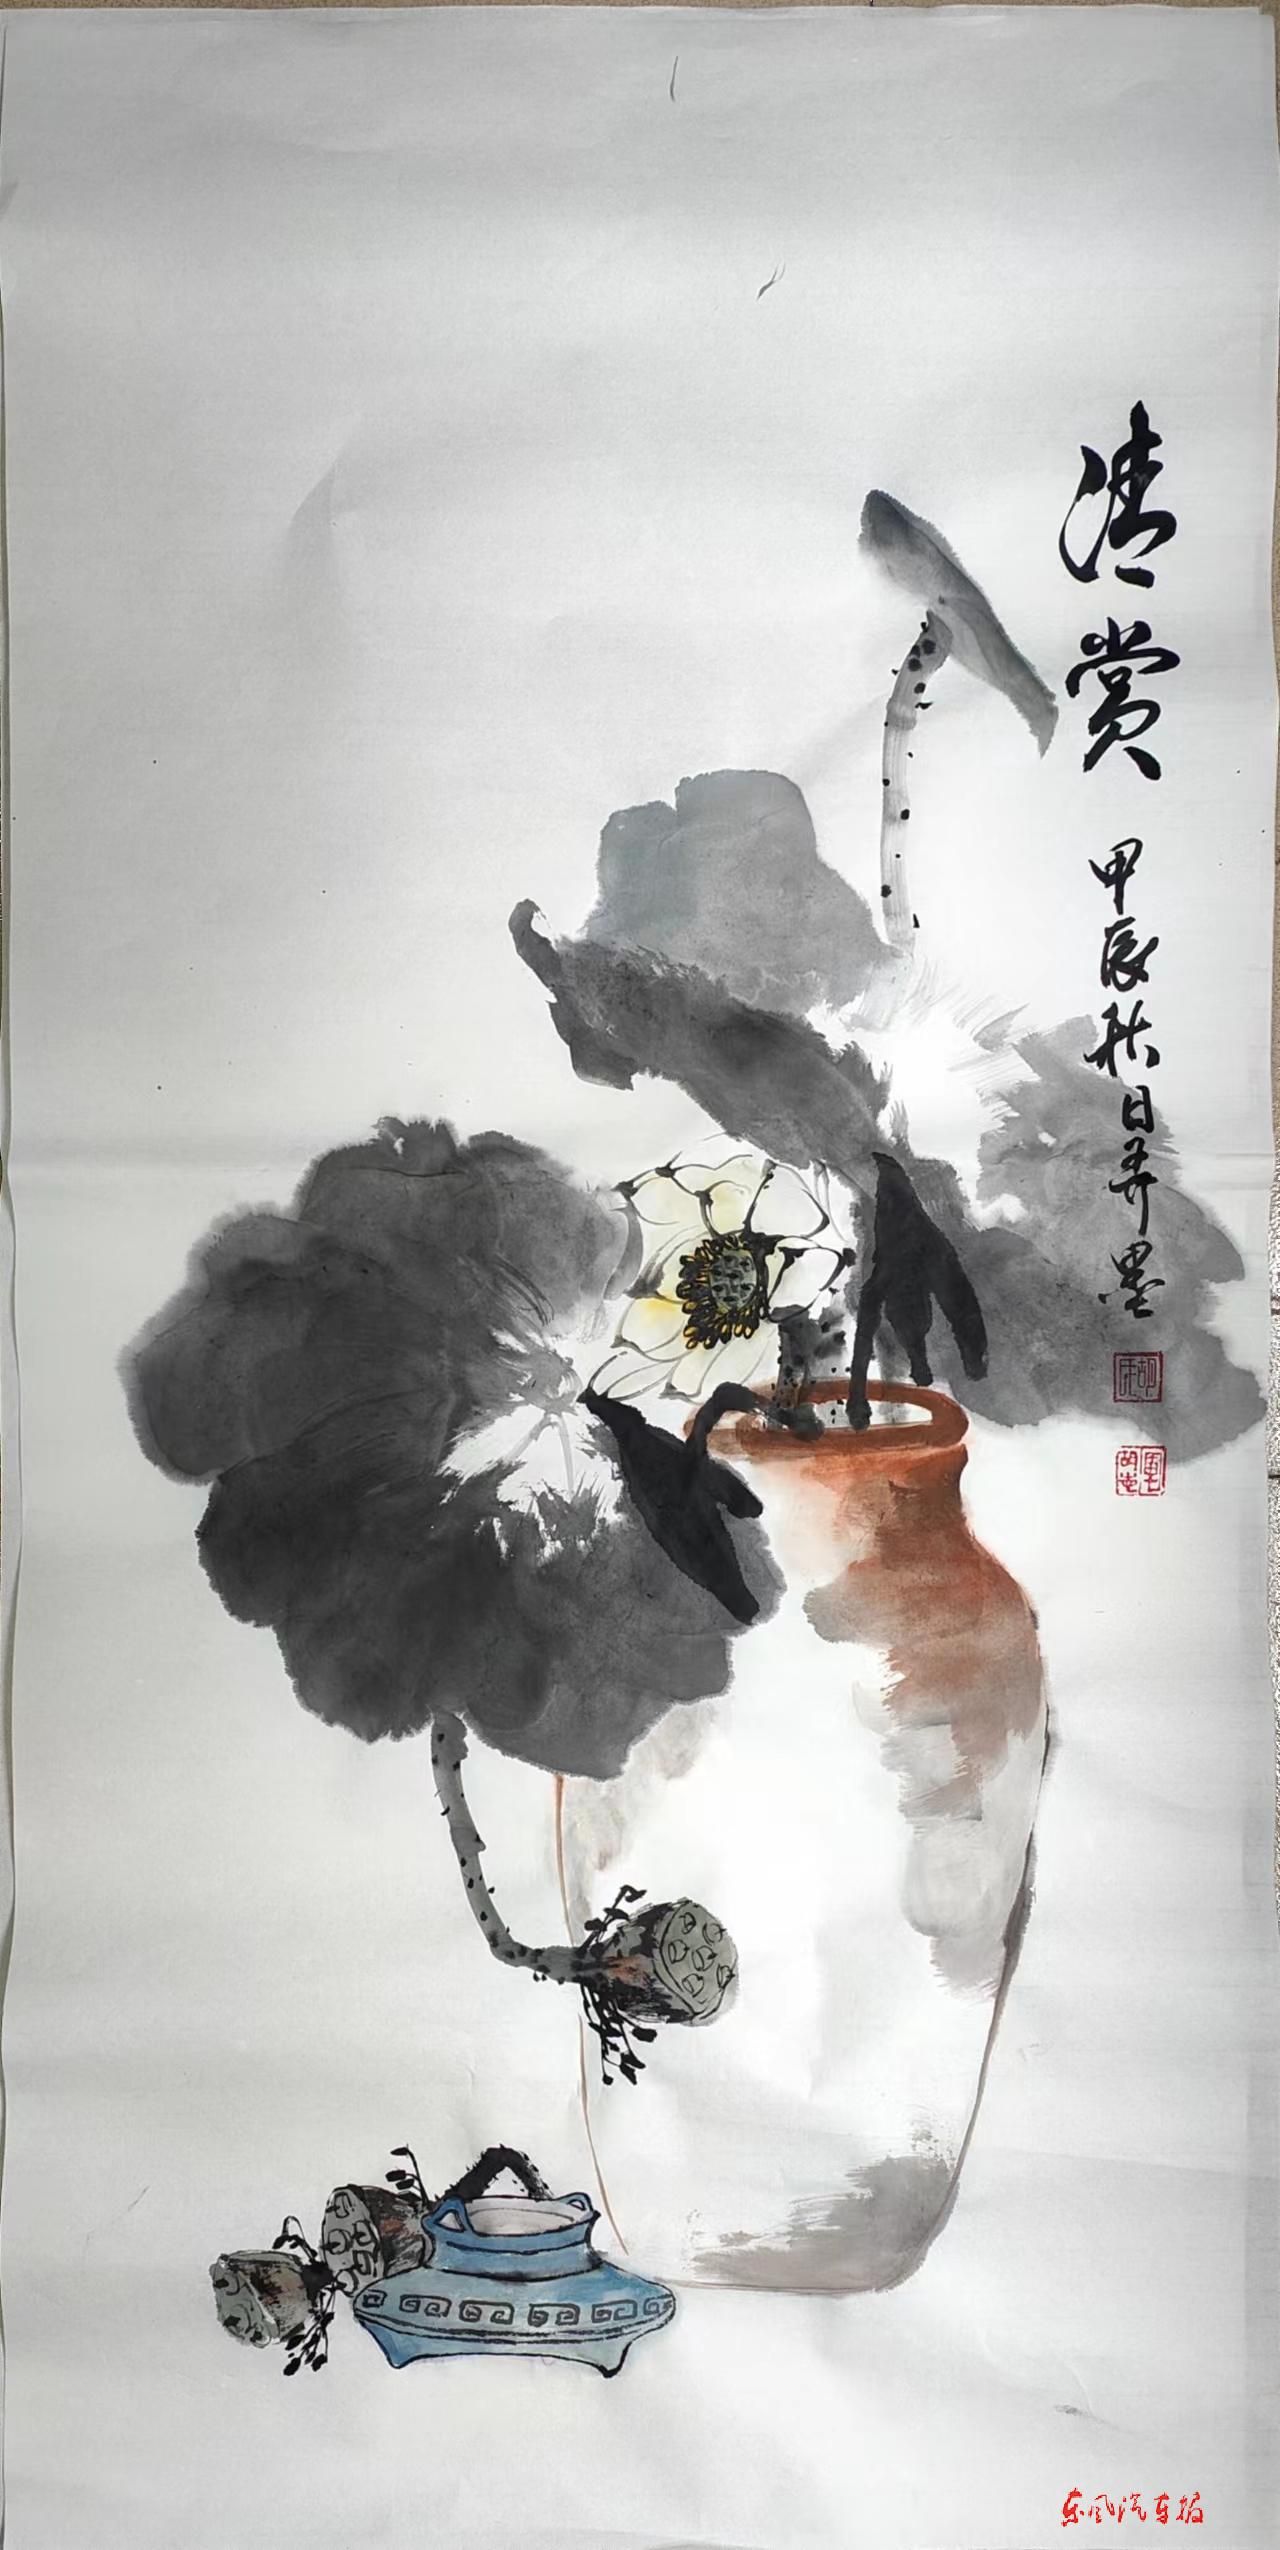 清赏
甲辰秋日弄墨
东风汽车报